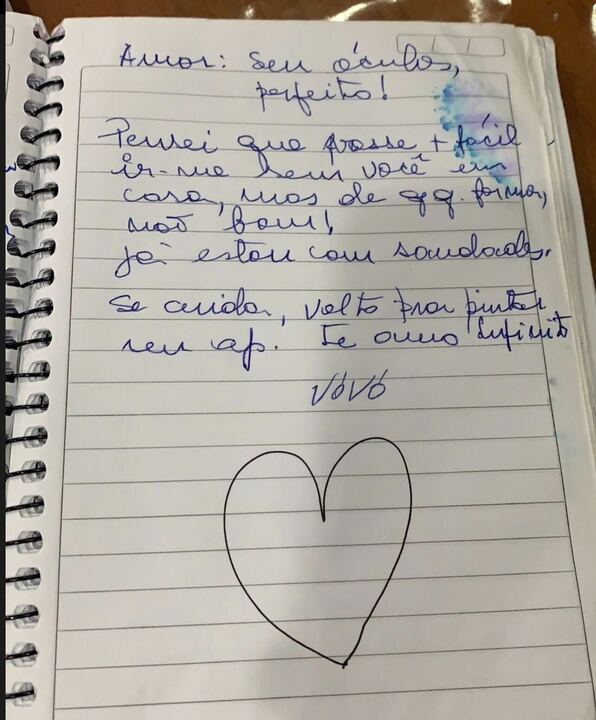 Amor: Seu óculos,
perfeito!
Pensei que fosse + fácil
ir-me sem você em
casa, mas de qq. forma,
não bom!
Já estou com saudades.
Se cuida, volto pra pintar
seu ap. Te amo infinito
VóVó